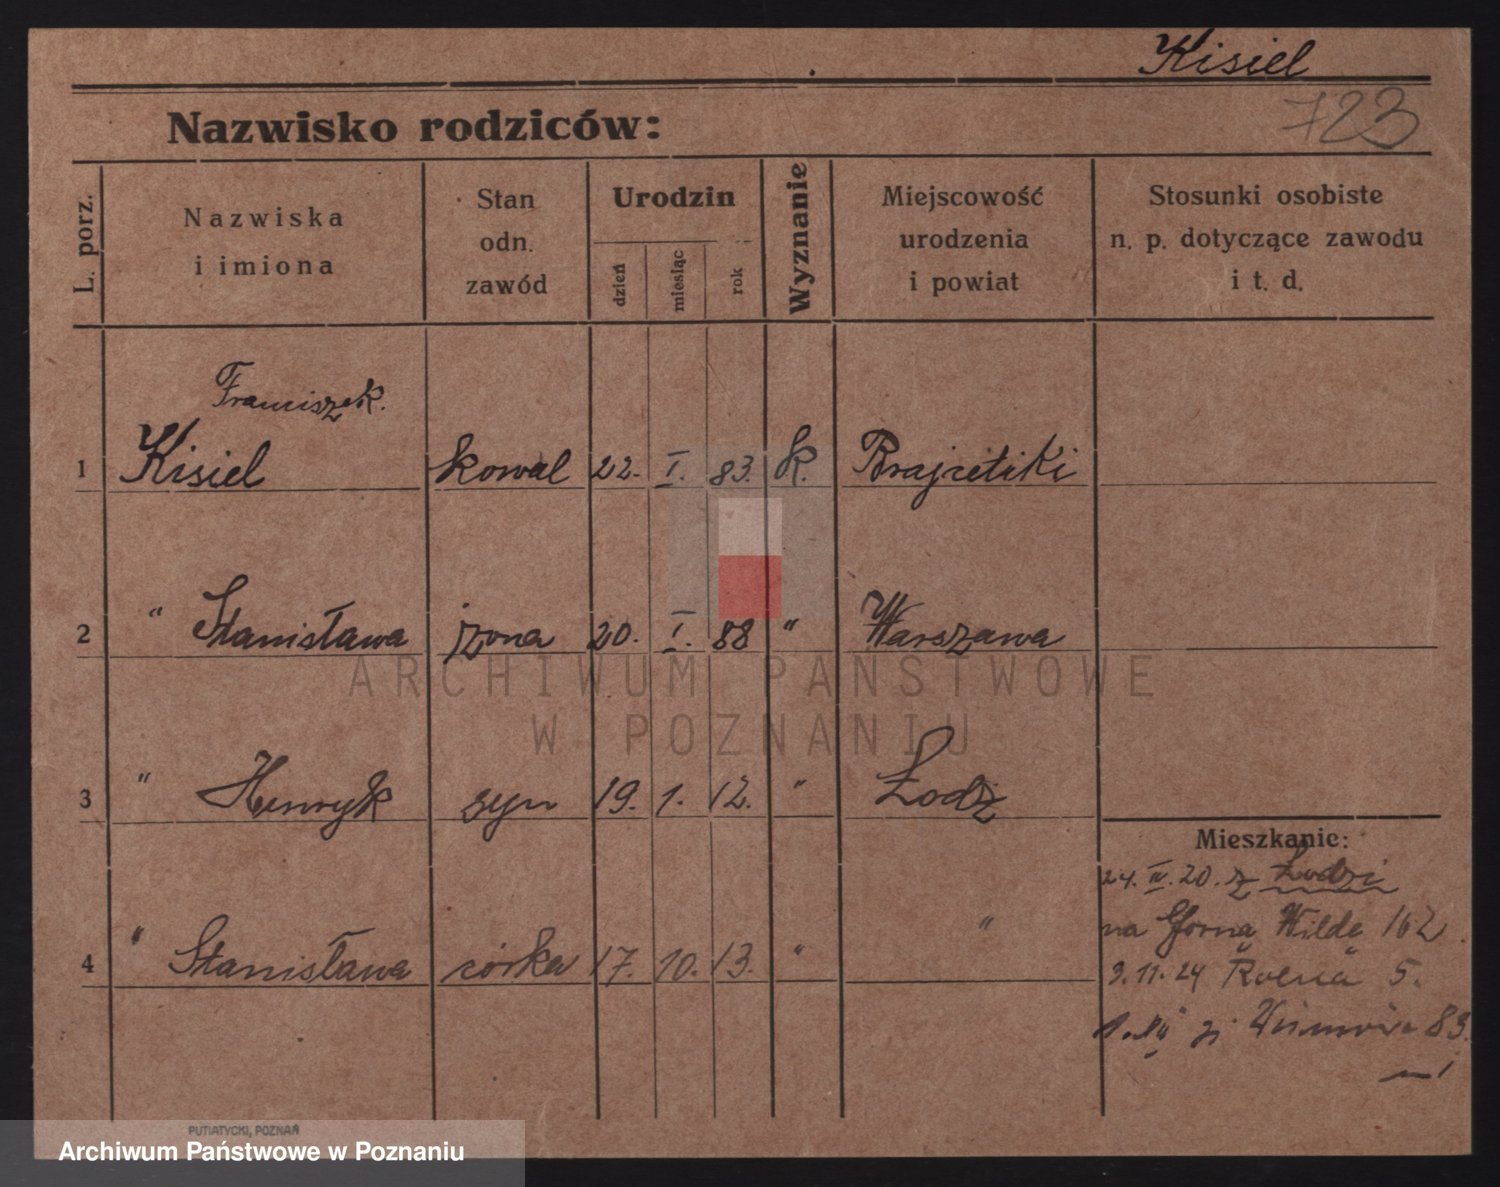 Kisiel
723
Nazwisko rodziców:
L. porz.
Nazwiska
i imiona
Stan
odn.
zawód
Urodzin
dzień
miesiąc
rok
Wyznanie
Miejscowość
urodzenia
i powiat
Stosunki osobiste
n. p. dotyczące zawodu
i t. d.
Franciszek.
1 Kisiel kowal 22. I. 83. k.
2 " Stanisława żona 20. I. 88 " Warszawa
3 " Henryk syn 19. 1. 12. " Łodź
Mieszkanie:
24. IV. 20. z Łodzi
na Górna Wilda 162.
4 " Stanisława córka 17. 10. 13. " "
9. 11. 24 Rolna 5.
83.
PUTIATYCKI, POZNAŃ
ARCHIWUM PAŃSTWOWE
W POZNANIU
Archiwum Państwowe w Poznaniu